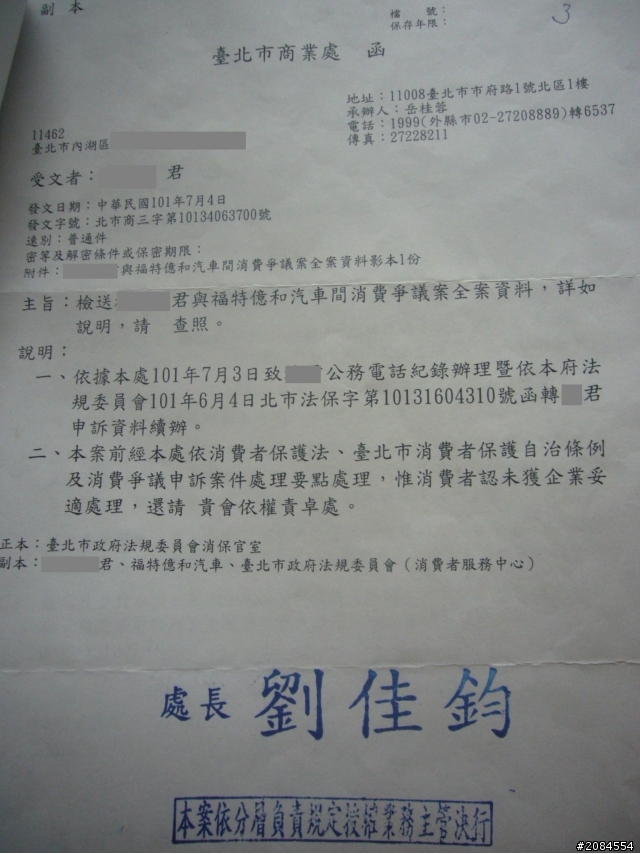 副本
檔　　號：
保存年限：
3
臺北市商業處　函
地址：11008臺北市市府路1號北區1樓
承辦人：岳桂蓉
電話：1999(外縣市02-27208889)轉6537
傳真：27228211
11462
臺北市內湖區
受文者：　　　君
發文日期：中華民國101年7月4日
發文字號：北市商三字第10134063700號
速別：普通件
密等及解密條件或保密期限：
附件：　　　君與福特億和汽車間消費爭議案全案資料影本1份
主旨：檢送　　　君與福特億和汽車間消費爭議案全案資料，詳如
說明，請　查照。
說明：
一、依據本處101年7月3日致　　　公務電話紀錄辦理暨依本府法
規委員會101年6月4日北市法保字第10131604310號函轉　君
申訴資料續辦。
二、本案前經本處依消費者保護法、臺北市消費者保護自治條例
及消費爭議申訴案件處理要點處理，惟消費者認未獲企業妥
適處理，還請　貴會依權責卓處。
正本：臺北市政府法規委員會消保官室
副本：　　　君、福特億和汽車、臺北市政府法規委員會（消費者服務中心）
處長　劉佳鈞
本案依分層負責規定授權業務主管決行
#2084554